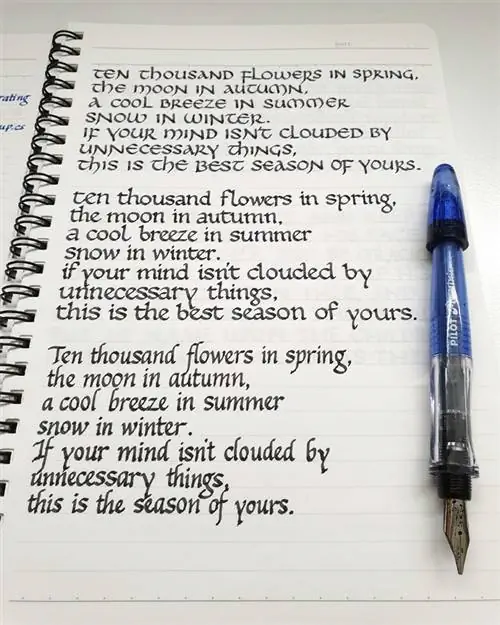 rating
up.cs
DATE
Ten thousand flowers in spring,
the moon in autumn,
a cool breeze in summer
snow in winter.
if your mind isn't clouded by
unnecessary things,
this is the best season of yours.
ten thousand flowers in spring,
the moon in autumn,
a cool breeze in summer
snow in winter.
if your mind isn't clouded by
unnecessary things,
this is the best season of yours.
Ten thousand flowers in spring,
the moon in autumn,
a cool breeze in summer
snow in winter.
If your mind isn't clouded by
unnecessary things,
this is the season of yours.
PILOT